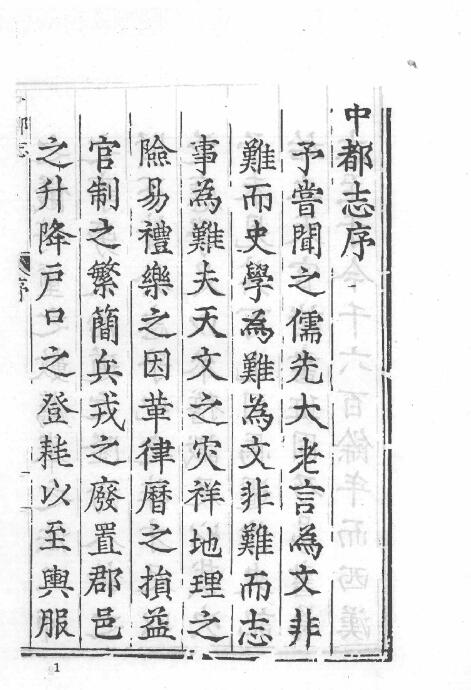 中都志序
予嘗聞之儒先大老言為文非
難而史學為難為文非難而志
事為難夫天文之灾祥地理之
險易禮樂之因革律曆之損益
官制之繁簡兵戎之廢置郡邑
之升降戶口之登耗以至輿服
序
1